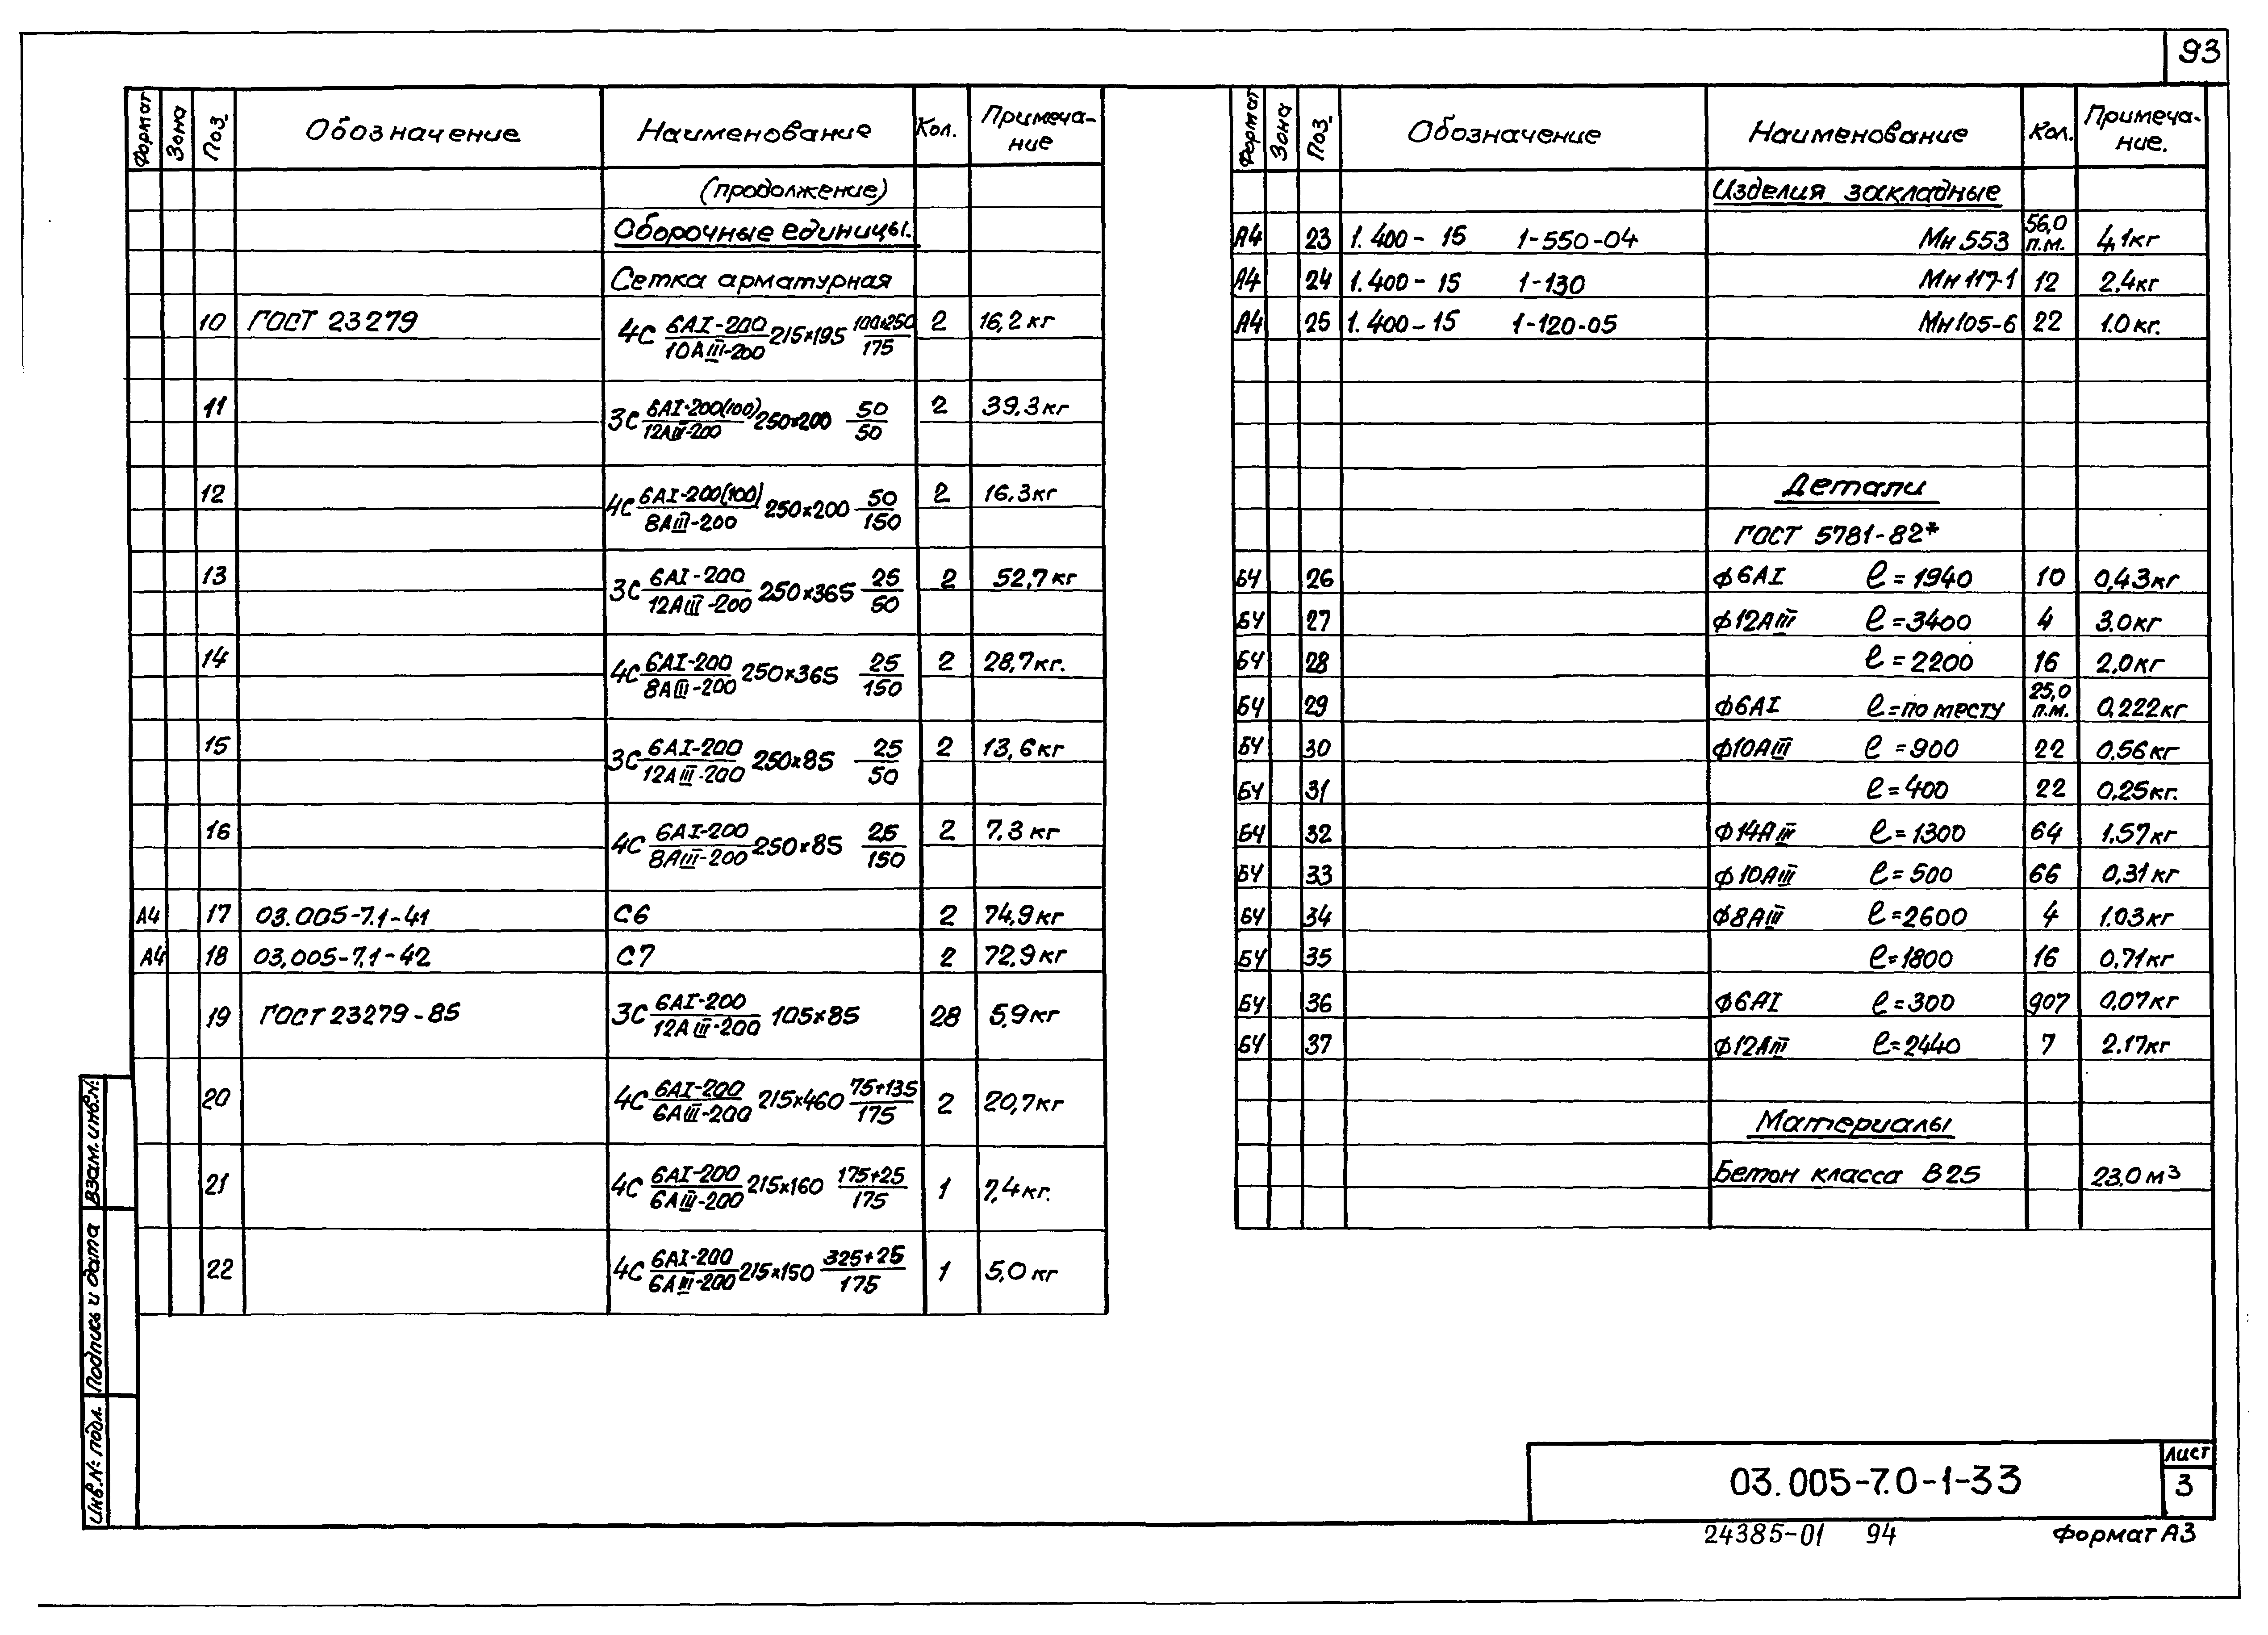 93
Формат Зона Поз. Обозначение Наименование Кол. Примеча-ние
(продолжение)
Сборочные единицы.
Сетка арматурная
10 ГОСТ 23279 4С 6АI-200/10АIII-200 215×195 100+250/175 2 16,2 кг
11 3С 6АI-200(100)/12АIII-200 250×200 50/50 2 39,3 кг
12 4С 6АI-200(100)/8АIII-200 250×200 50/150 2 16,3 кг
13 3С 6АI-200/12АIII-200 250×365 25/50 2 52,7 кг
14 4С 6АI-200/8АIII-200 250×365 25/150 2 28,7 кг.
15 3С 6АI-200/12АIII-200 250×85 25/50 2 13,6 кг
16 4С 6АI-200/8АIII-200 250×85 25/150 2 7.3 кг
А4 17 03.005-7.1-41 С6 2 74,9 кг
А4 18 03.005-7.1-42 С7 2 72,9 кг
19 ГОСТ 23279-85 3С 6АI-200/12АIII-200 105×85 28 5,9 кг
20 4С 6АI-200/6АIII-200 215×460 75+135/175 2 20,7 кг
21 4С 6АI-200/6АIII-200 215×160 175+25/175 1 7,4 кг.
22 4С 6АI-200/6АIII-200 215×150 325+25/175 1 5,0 кг
Формат Зона Поз. Обозначение Наименование Кол. Примеча-ние.
Изделия закладные
А4 23 1.400-15 1-550-04 Мн553 56,0 п.м. 4,1 кг
А4 24 1.400-15 1-130 Мн117-1 12 2.4 кг
А4 25 1.400-15 1-120-05 Мн105-6 22 1.0 кг.
Детали
ГОСТ 5781-82*
БЧ 26 ф6АI ℓ=1940 10 0,43 кг
БЧ 27 ф12АIII ℓ=3400 4 3.0 кг
БЧ 28 ℓ=2200 16 2.0 кг
БЧ 29 ф6АI ℓ=по месту 25,0 п.м. 0,222 кг
БЧ 30 ф10АIII ℓ=900 22 0.56 кг
БЧ 31 ℓ=400 22 0,25 кг.
БЧ 32 ф14АIII ℓ=1300 64 1.57 кг
БЧ 33 ф10АIII ℓ=500 66 0,31 кг
БЧ 34 ф8АIII ℓ=2600 4 1.03 кг
БЧ 35 ℓ=1800 16 0,71 кг
БЧ 36 ф6АI ℓ=300 907 0.07 кг
БЧ 37 ф12АIII ℓ=2440 7 2.17 кг
Материалы
Бетон класса В25 23.0 м³
Взам. инв.№
Подпись и дата
Инв.№ подл.
03.005-7.0-1-33
Лист
3
24385-01 94 Формат А3